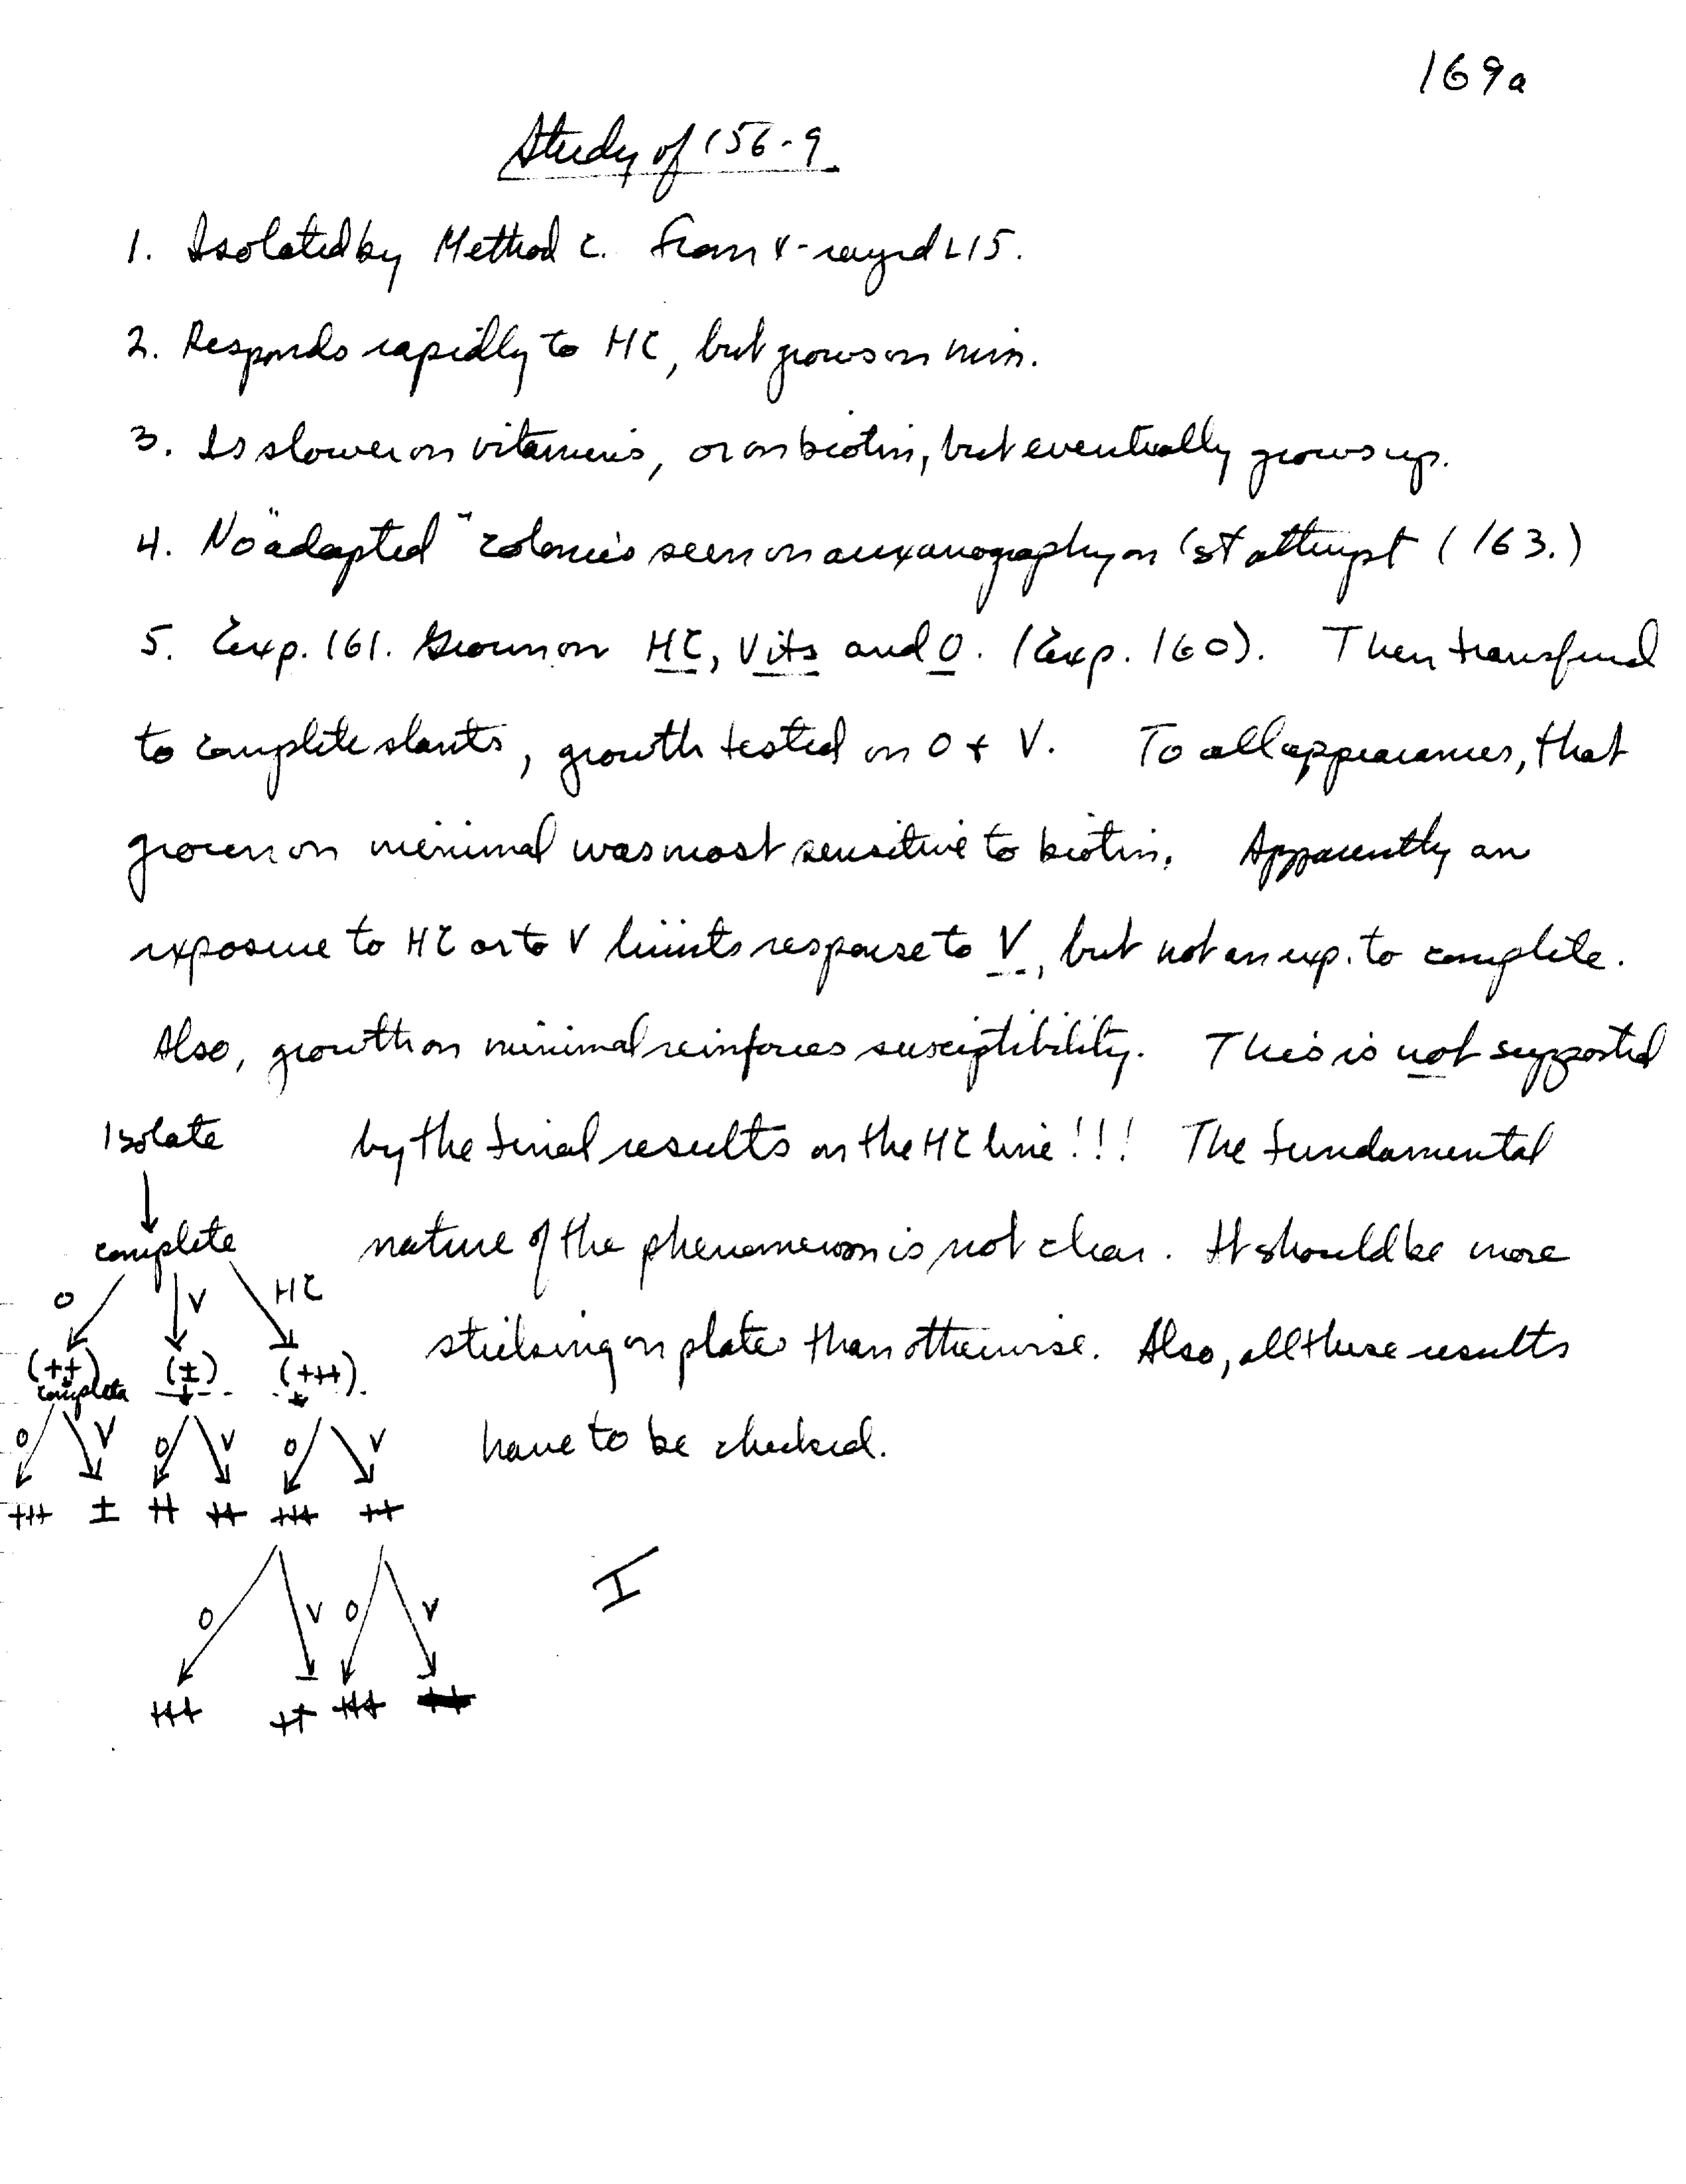 169a
Study of 156-9.
1. Isolated by Method C. From X-rayed L15.
2. Responds rapidly to HC, but grows on min.
3. Is slower on vitamins, or on biotin, but eventually grows up.
4. No "adapted" colonies seen on auxanography on 1st attempt (163.)
5. Exp. 161. Grown on HC, Vits and O. (Exp. 160). Then transferred
to complete slants, growth tested on O + V. To all appearances, that
grown on minimal was most sensitive to biotin. Apparently an
exposure to HC or to V limits response to V, but not an exp. to complete.
Also, growth on minimal reinforces susceptibility. This is not supported
by the final results on the HC line!!! The fundamental
nature of the phenomenon is not clear. It should be more
striking on plates than otherwise. Also, all these results
have to be checked.
Isolate
complete
O V HC
(++) (±) (+++)
complete
O V O V O V
+++ ± ++ ++ +++ ++
O V O V
+++ ++ +++